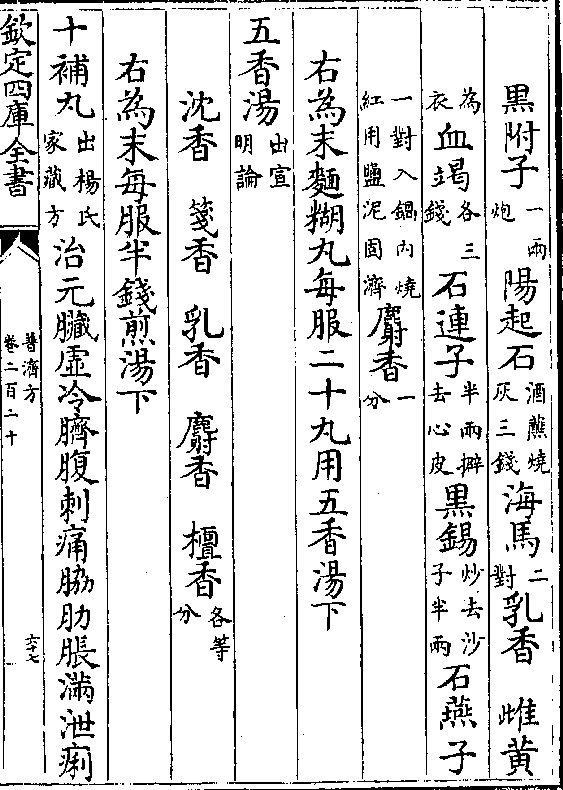 黒附子一兩炮陽起石酒蘸燒灰三錢海馬二對乳香雌黄
為衣血竭各三錢石連子半兩擗去心皮黒錫炒去沙子半兩石燕子
一對入鍋内燒紅用鹽泥固濟麝香一分
右為末麵糊丸每服二十九用五香湯下
五香湯出宣明論
沈香 箋香 乳香 麝香 檀香各等分
右為末每服半錢煎湯下
十補丸出楊氏家藏方治元臟虛冷臍腹刺痛脇肋脹滿泄痢
欽定四庫全書
普濟方
卷二百二十
六十七